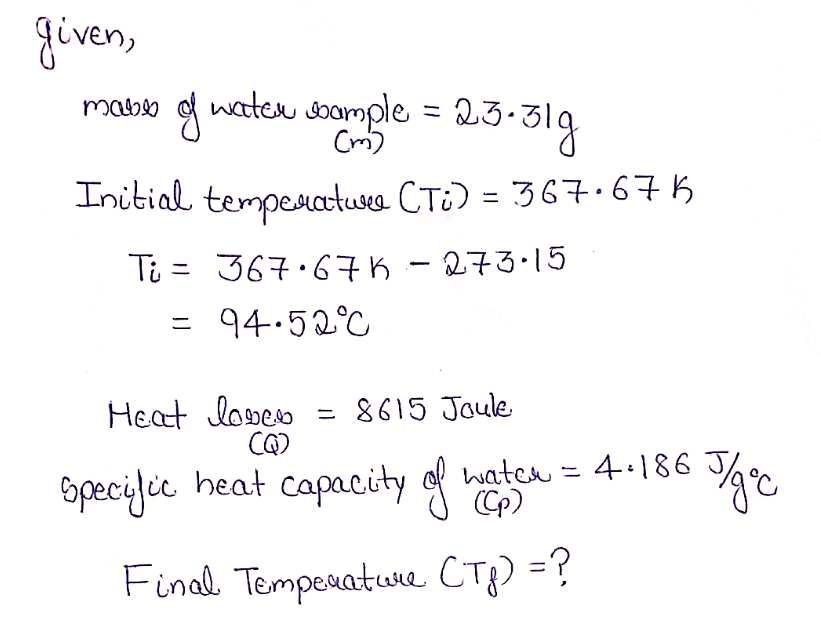 given,
mass of water sample = 23.31g
(m)
Initial temperature (Ti) = 367.67 K
Ti = 367.67 K - 273.15
= 94.52°C
Heat loses = 8615 Joule
(Q)
Specific heat capacity of water = 4.186 J/g°C
(Cp)
Final Temperature (Tf) = ?